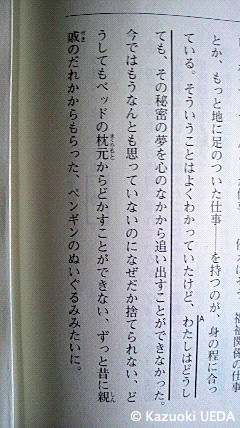 福祉関係の仕事
とか、もっと地に足のついた仕事――を持つのが、身の程に合っ
ている。そういうことはよくわかっていたけど、わたしはどうし
A
ても、その秘密の夢を心のなかから追い出すことができなかった。
今ではもうなんとも思っていないのになぜだか捨てられない、ど
うしてもベッドの枕元からどかすことができない、ずっと昔に親
まくらもと
しん
戚のだれかからもらった、ペンギンのぬいぐるみみたいに。
せき
© Kazuoki UEDA